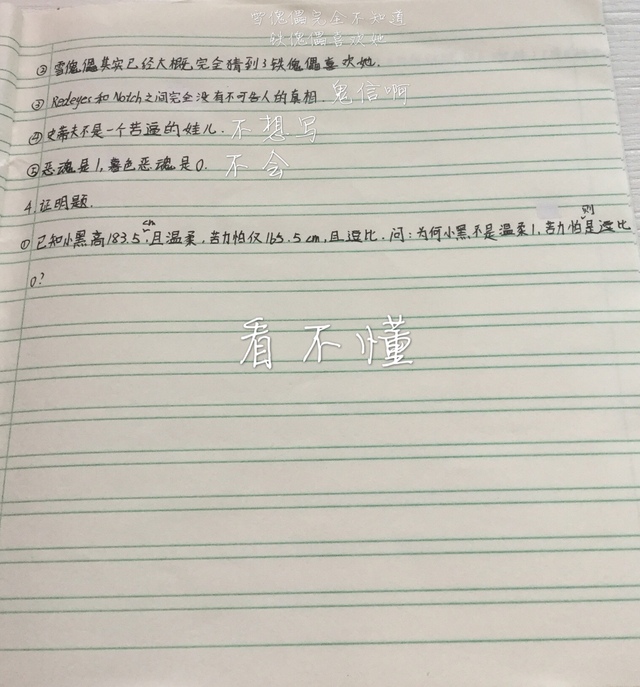 雪傀儡完全不知道
铁傀儡喜欢她
②雪傀儡其实已经大概完全猜到了铁傀儡喜欢她.
③Redeyes和Notch之间完全没有不可告人的真相. 鬼信啊
④史蒂夫不是一个苦逼的娃儿. 不想写
⑤恶魂是1,暮色恶魂是0. 不会
4.证明题.
①已知小黑高183.5cm,且温柔,苦力怕仅165.5cm,且逗比.问:为何小黑不是温柔1,苦力怕则是逗比
0?
看不懂